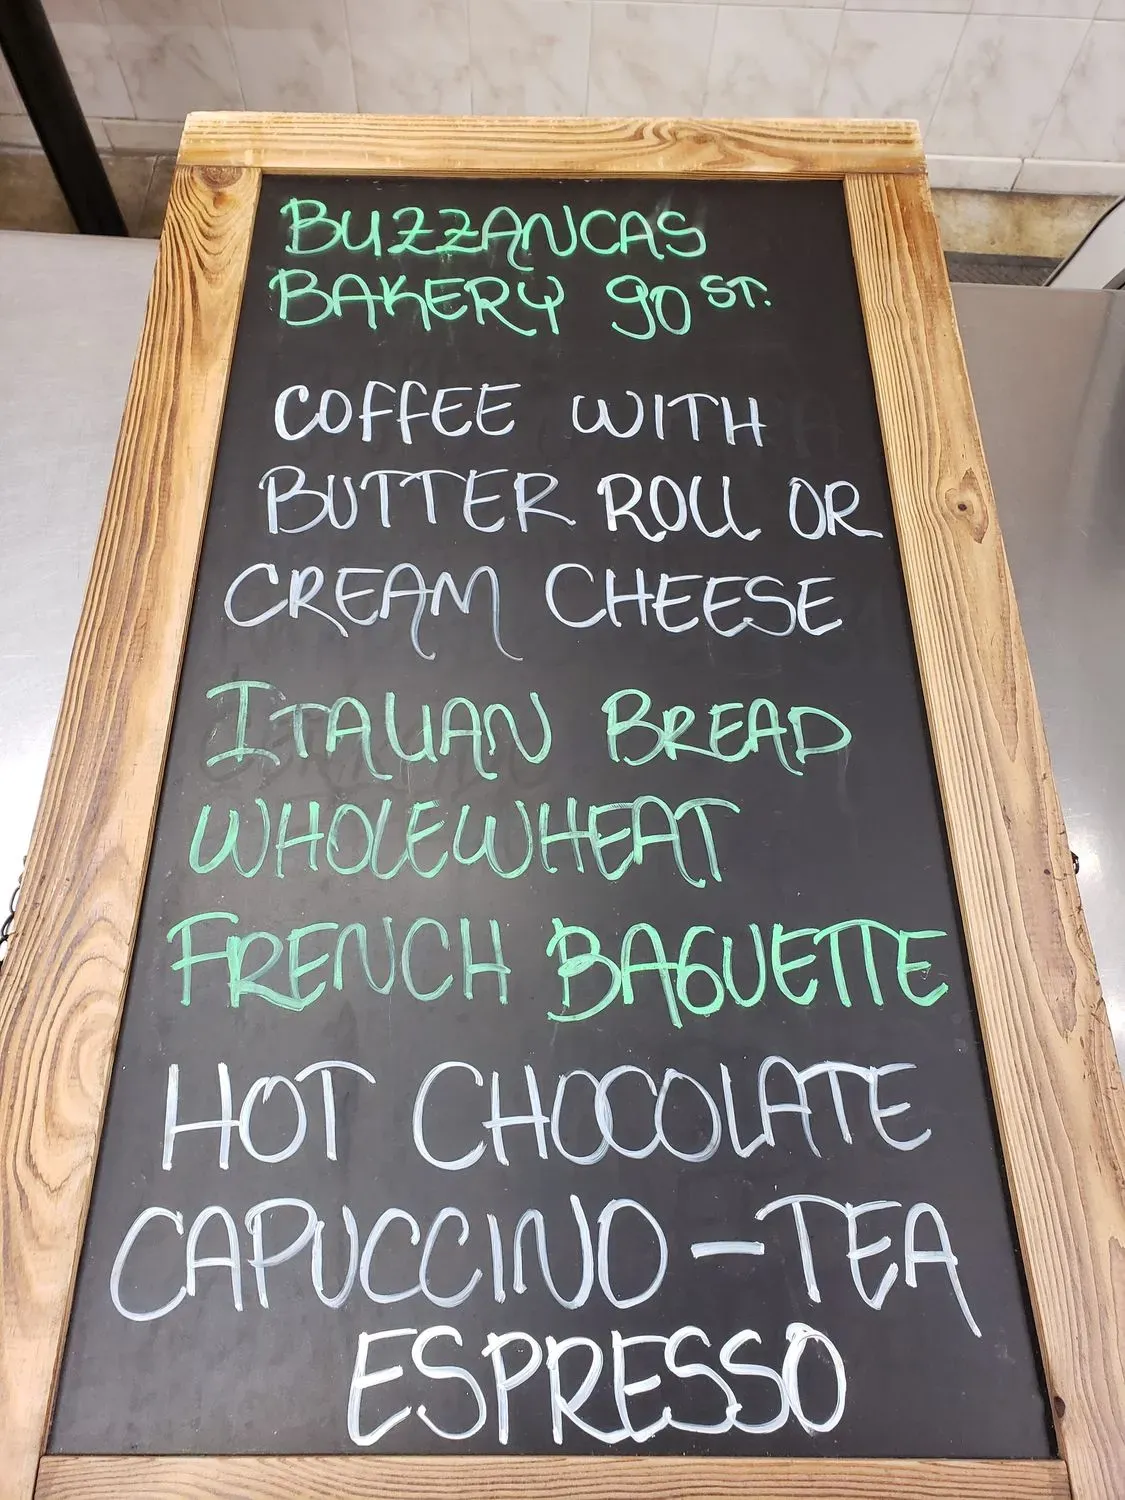 BUZZANCAS
BAKERY 90 ST.
COFFEE WITH
BUTTER ROLL OR
CREAM CHEESE
ITALIAN BREAD
WHOLEWHEAT
FRENCH BAGUETTE
HOT CHOCOLATE
CAPUCCINO - TEA
ESPRESSO